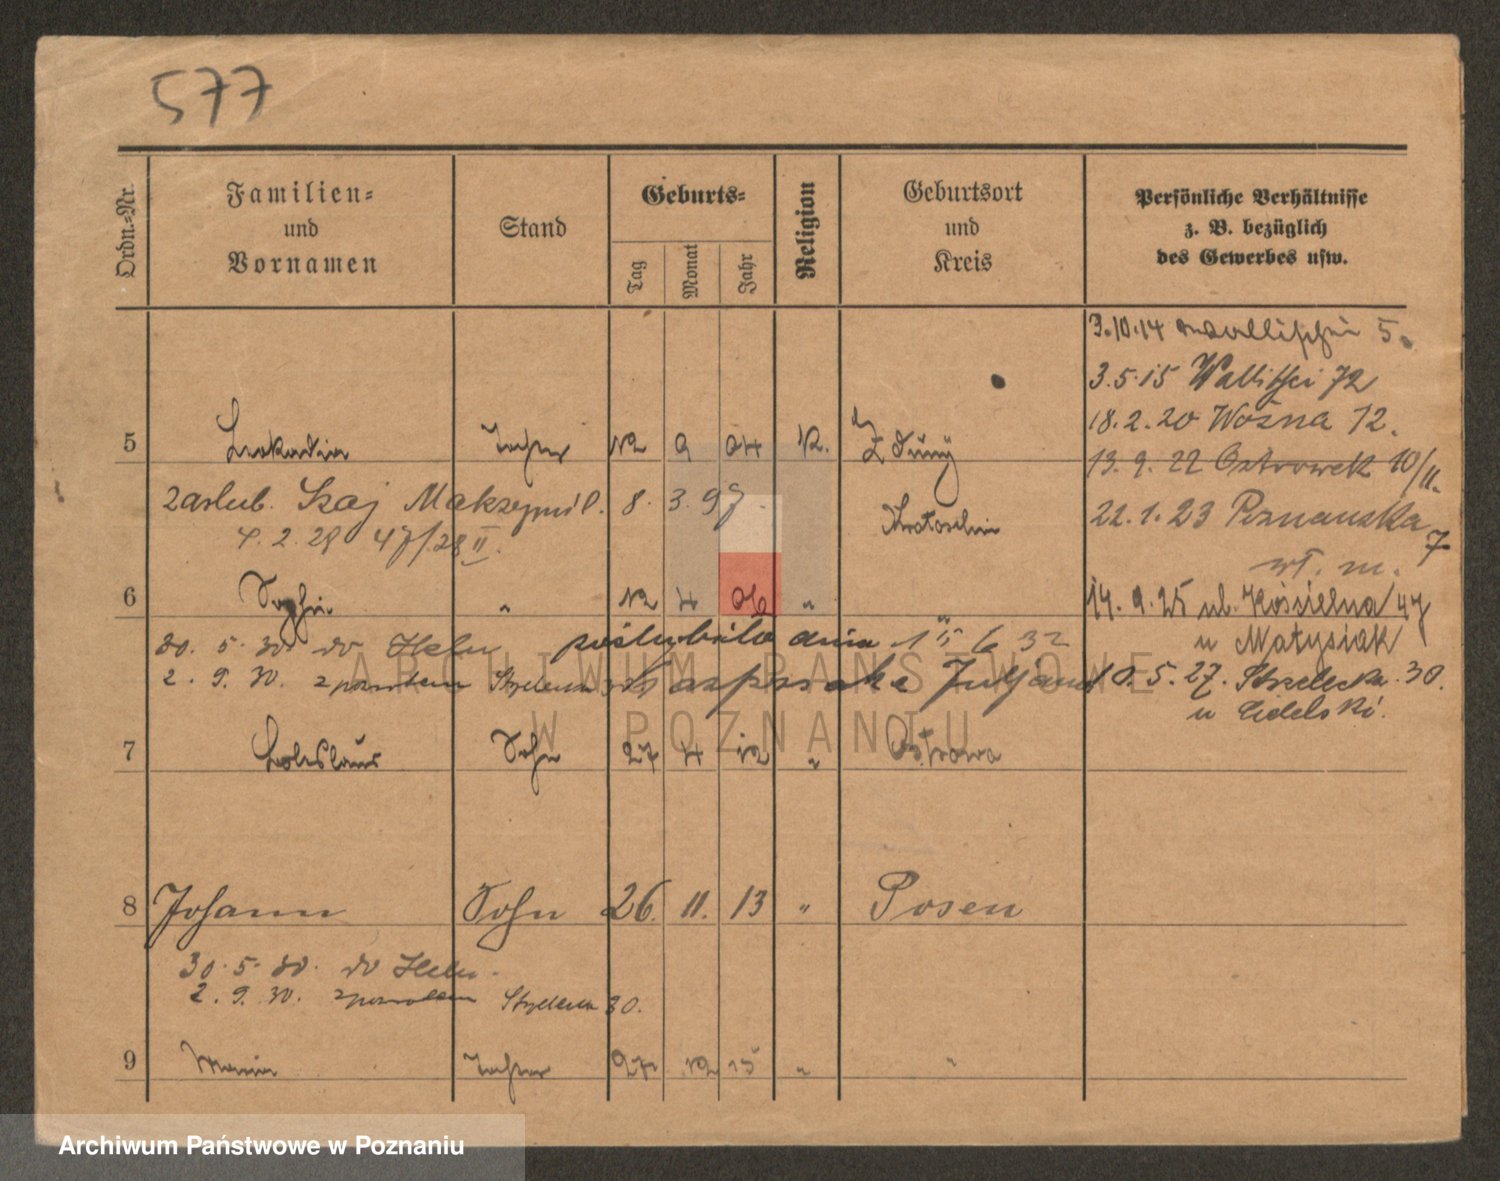 577
Ordn.-Nr.
Familien-
und
Vornamen
Stand
Geburts-
Tag
Monat
Jahr
Religion
Geburtsort
und
Kreis
Persönliche Verhältnisse
z. B. bezüglich
des Gewerbes usw.
3.10.14 Wallischei 5.
3.5.15 Wallischei 72
18.2.20 Woźna 12.
5 Leokadia Tochter 12 9 04 Zduny
13.9.22 Ostrowek 10/II.
zaślub. Maksymil. 8. 3. 97. Krotoschin
22.1.23 Poznańska 7
4.2.28 47/28 II.
wł. m.
6 Sophie " 12 4 06 "
14.9.25 ul. Kościelna 47
u Matysiak
30. 5. 30. do Helu poślubiła dnia 6 32
2. 9. 30. z powrotem Strzelecka 30 Kasprzaka Juljana
10.5.27. Strzelecka 30.
u
7 Boleslaus Sohn 27 4 12 " Ostrowo
8 Johann Sohn 26. 11. 13 " Posen
30. 5. 30. do Helu.
2. 9. 30. z powrotem Strzelecka 30.
9 Maria Tochter 27 12 15 " "
ARCHIWUM PAŃSTWOWE
W POZNANIU
Archiwum Państwowe w Poznaniu